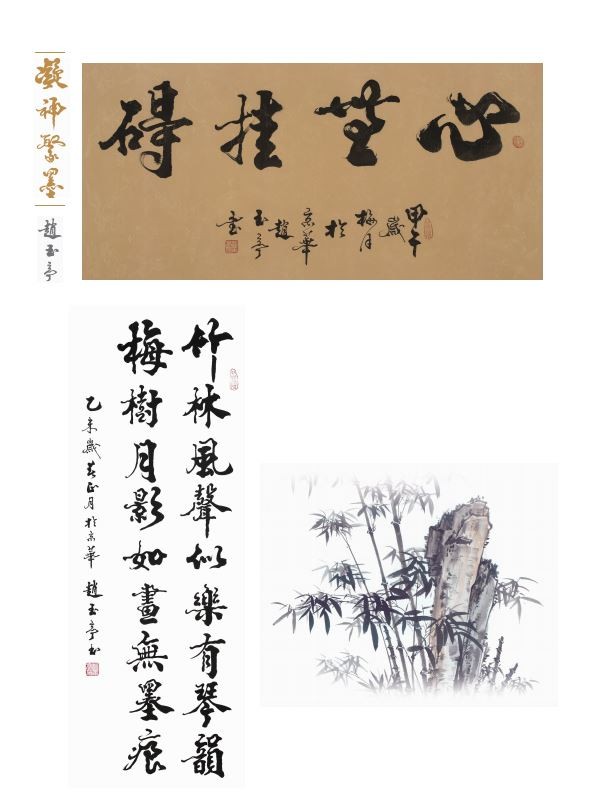 凝神聚墨
趙玉亭
心無挂碍
甲午
歲
梅月
於
京華
趙
玉亭
書
竹林風聲似樂有琴韻
梅樹月影如畫無墨痕
乙未歲春正月於京華 趙玉亭書